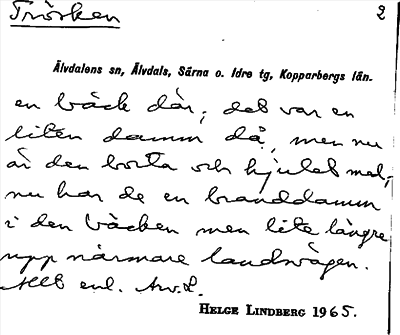 Trösken 2
Älvdalens sn, Älvdals, Särna o. Idre tg, Kopparbergs län.
en bäck där; det var en
liten damm då, men nu
är den borta och hjulet med,
nu har de en branddamm
i den bäcken men lite längre
upp närmare landsvägen.
enl.
HELGE LINDBERG 1965.